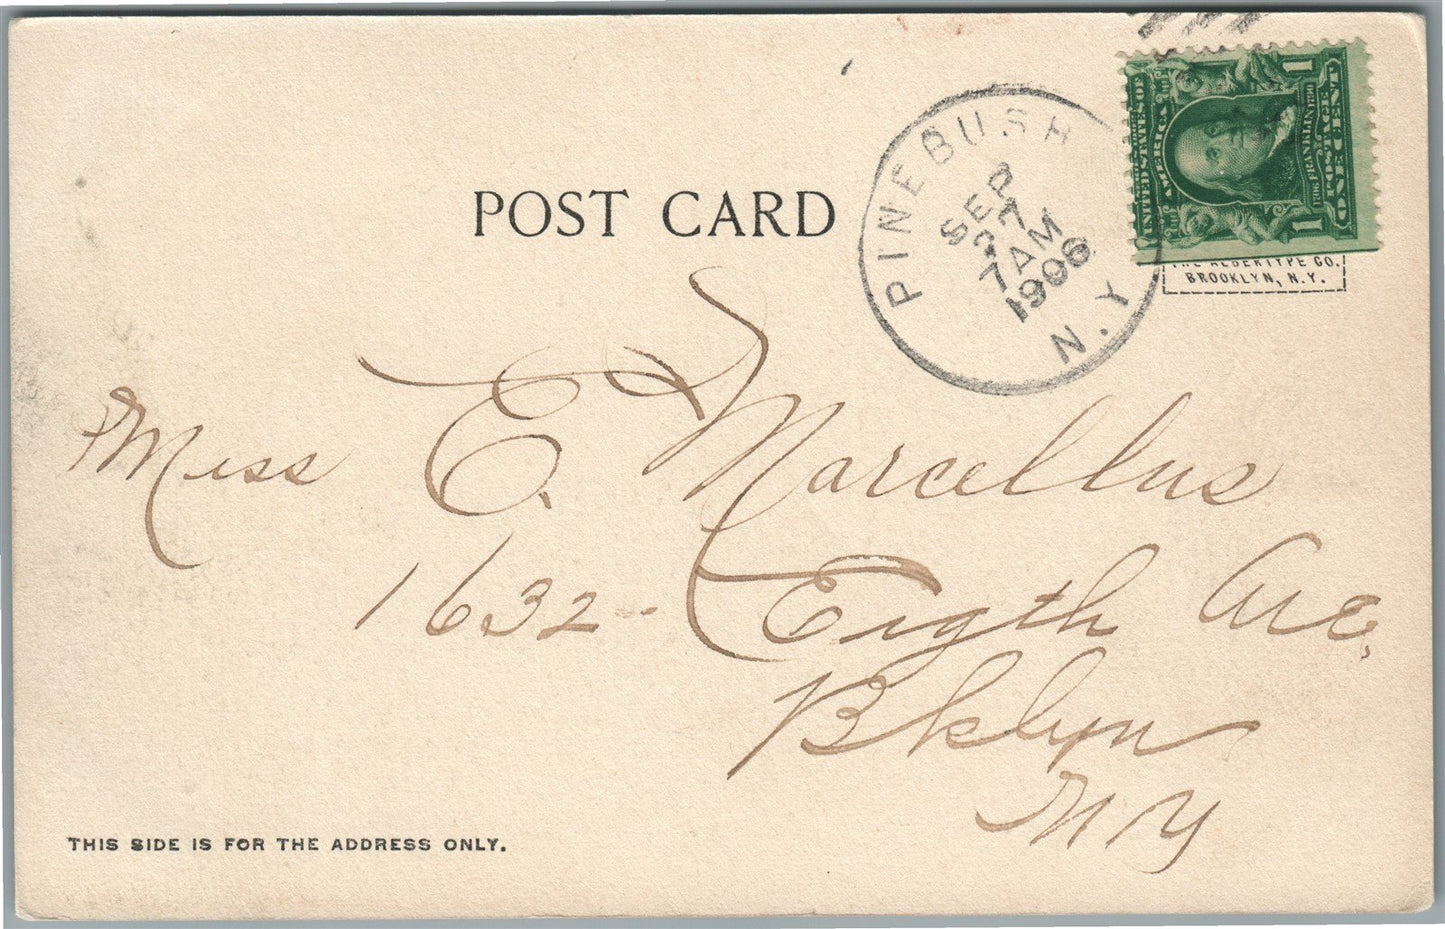 POST CARD
PINEBUSH
SEP
27
7 AM
1906
N.Y.
UNITED STATES OF
AMERICA
1706 FRANKLIN 1790
POSTAGE
ONE CENT
1
1
THE ALBERTYPE CO.
BROOKLYN, N.Y.
Miss E. Marcellus
1632 - Eigth Ave,
Bklyn
NY
THIS SIDE IS FOR THE ADDRESS ONLY.